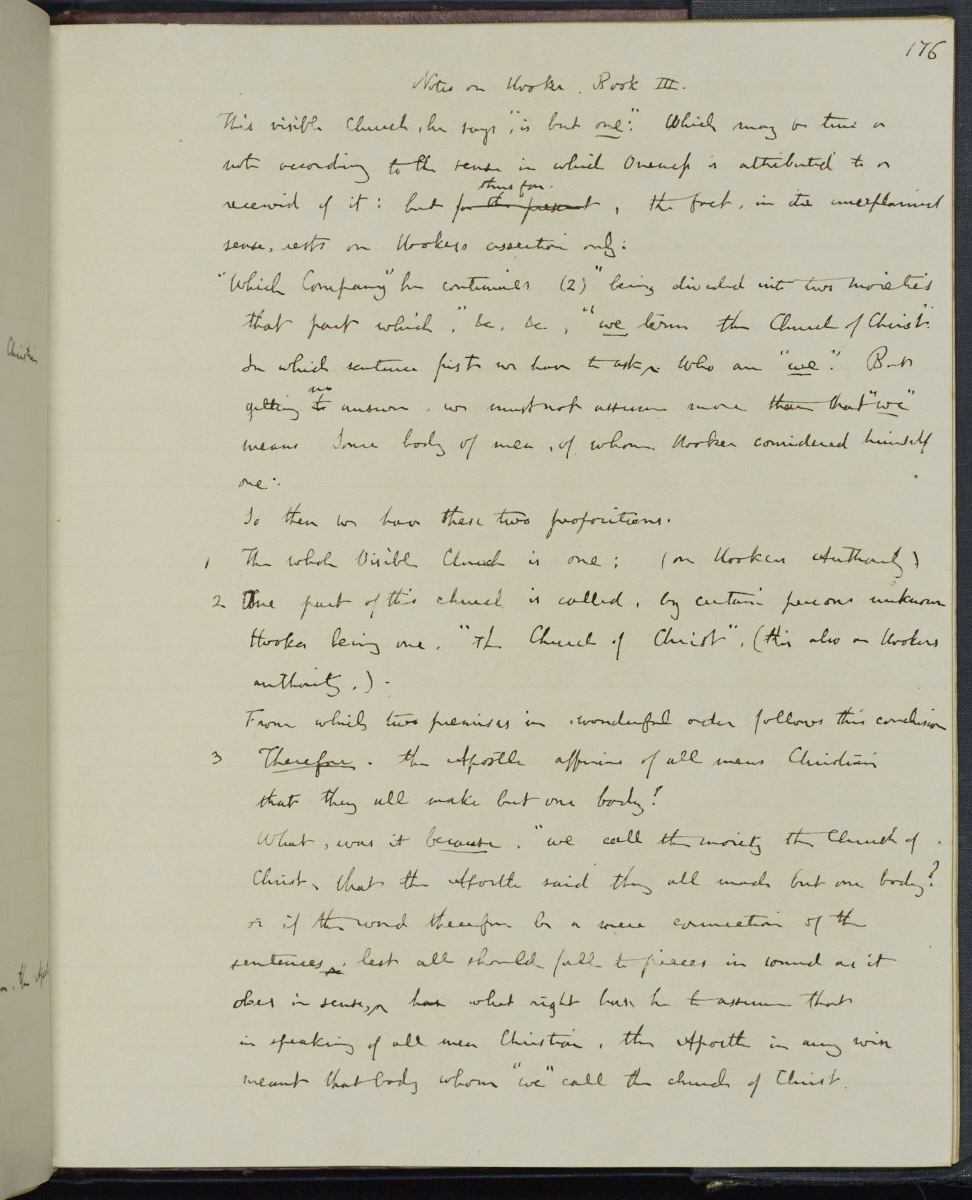 176
Notes on Hooker. Book III.
This visible Church, he says, "is but one". Which may be true or
not according to the sense in which Oneness is attributed to or
thus far.
received of it: but for the present, the fact, in its unexplained
sense, rests on Hookers assertion only:
"Which Company" he continues (2) "being divided into two moieties
that part which," &c. &c, "we term the Church of Christ".
In which sentence first we have to ask, Who are "we". But
no
getting to answer, we must not assume more than that "we"
means Some body of men, of whom Hooker considered himself
one.
So then we have these two propositions.
1 The whole Visible Church is one; (on Hookers Authority)
2 One part of this church is called, by certain persons unknown
Hooker being one, "The Church of Christ", (this also on Hookers
authority.).
From which two premises in wonderful order follows this conclusion
3 Therefore. the Apostle affirms of all mens Christian
that they all make but one body!
What, was it because, "we call the moiety the Church of
Christ, that the Apostle said they all made but one body?
or if the word therefore be a mere connection of the
sentences, lest all should fall to pieces in sound as it
does in sense, has what right has he to assume that
in speaking of all men Christian, the Apostle in any wise
meant that body whom "we" call the church of Christ.
Christian